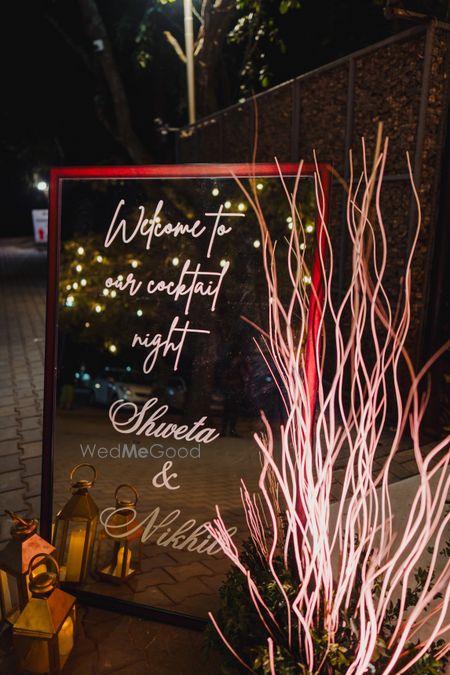 Welcome to
our cocktail
night
Shweta
WedMeGood
&
Nikhil